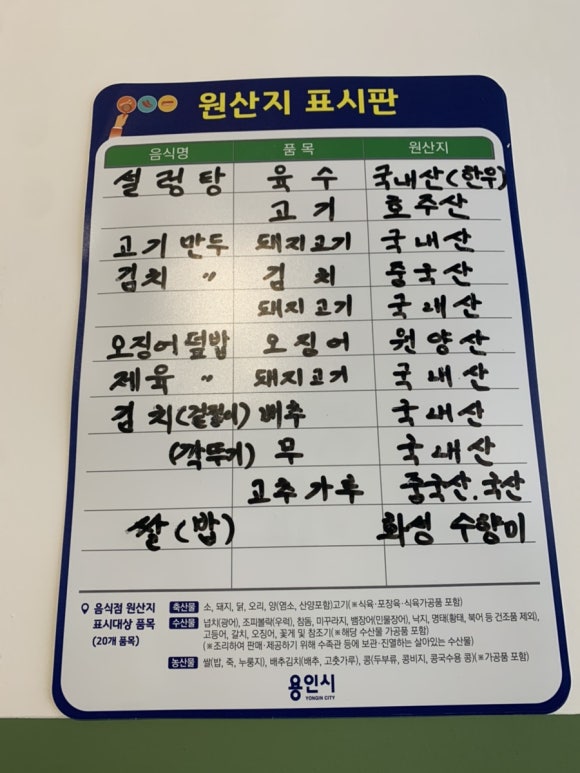 원산지 표시판
음식명 품목 원산지
설렁탕 육수 국내산(한우)
고기 호주산
고기만두 돼지고기 국내산
김치 〃 김치 중국산
돼지고기 국내산
오징어덮밥 오징어 원양산
제육 〃 돼지고기 국내산
김치(겉절이) 배추 국내산
(깍뚜기) 무 국내산
고추가루 중국산.국산
쌀(밥) 화성 수향미
음식점 원산지 표시대상 품목 (20개 품목)
축산물 소, 돼지, 닭, 오리, 양(염소, 산양포함)고기(※식육·포장육·식육가공품 포함)
수산물 넙치(광어), 조피볼락(우럭), 참돔, 미꾸라지, 뱀장어(민물장어), 낙지, 명태(황태, 북어 등 건조품 제외),
고등어, 갈치, 오징어, 꽃게 및 참조기(※해당 수산물 가공품 포함)
(※조리하여 판매·제공하기 위해 수족관 등에 보관·진열하는 살아있는 수산물)
농산물 쌀(밥, 죽, 누룽지), 배추김치(배추, 고춧가루), 콩(두부류, 콩비지, 콩국수용 콩)(※가공품 포함)
용인시
YONGIN CITY